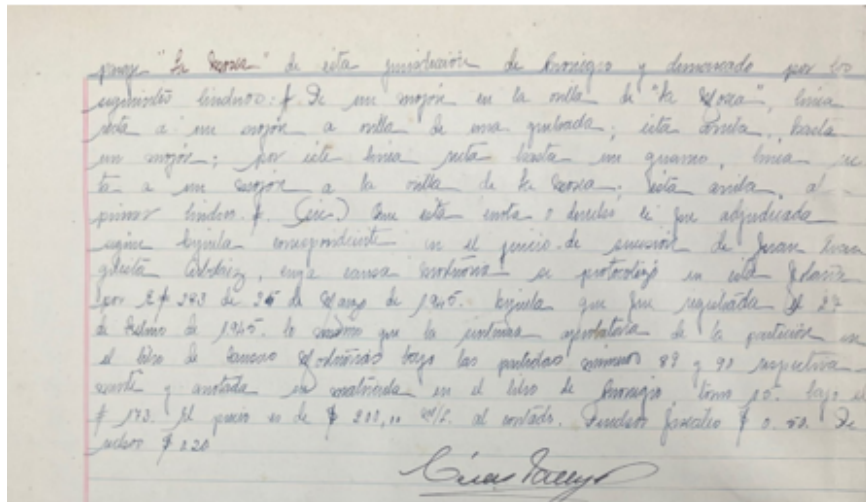 paraje "La Mosca" de esta jurisdicción de Rionegro y demarcado por los
siguientes linderos: # De un mojón en la orilla de "La Mosca", línea
recta a un mojón a orilla de una quebrada; esta arriba, hasta
un mojón; por este línea recta hasta un guamo, línea rec
ta a un mojón a la orilla de La Mosca; esta arriba, al
primer lindero. #. (sic.) Que esta cuota o derecho le fue adjudicada
según hijuela correspondiente en el juicio de sucesión de Juan Evan
gelista, cuya causa mortuoria se protocolizó en esta Notaría
por E# 283 de 26 de Marzo de 1945. hijuela que fue registrada el 27
de de 1945. lo mismo que la sentencia aprobatoria de la partición en
el libro de Causas Mortuorias bajo las partidas números 89 y 90 respectiva
mente y anotada en matrícula en el libro de Rionegro, tomo 10. bajo el
# 173. El precio es de $ 200,00 m/l. al contado. $ 0.50. De
$ 0.20